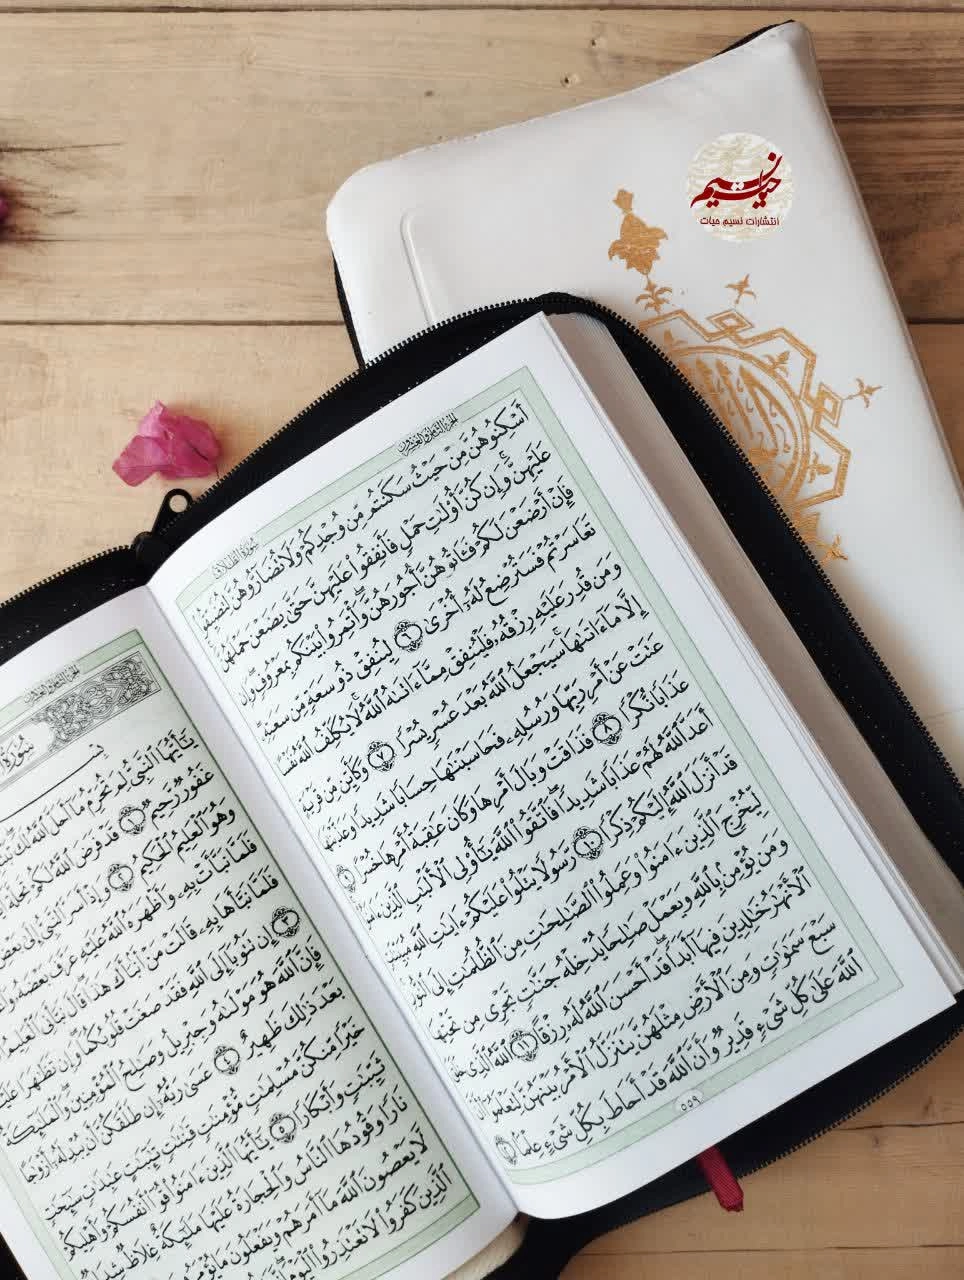 نسیم حیات
انتشارات نسیم حیات
سُورَةُ الطَّلَاقِ
الجزء الثامن والعشرون
أَسْكِنُوهُنَّ مِنْ حَيْثُ سَكَنتُم مِّن وُجْدِكُمْ وَلَا تُضَآرُّوهُنَّ لِتُضَيِّقُوا۟
عَلَيْهِنَّ ۚ وَإِن كُنَّ أُو۟لَٰتِ حَمْلٍ فَأَنفِقُوا۟ عَلَيْهِنَّ حَتَّىٰ يَضَعْنَ حَمْلَهُنَّ
فَإِنْ أَرْضَعْنَ لَكُمْ فَـَٔاتُوهُنَّ أُجُورَهُنَّ ۖ وَأْتَمِرُوا۟ بَيْنَكُم بِمَعْرُوفٍ ۖ وَإِن
تَعَاسَرْتُمْ فَسَتُرْضِعُ لَهُۥٓ أُخْرَىٰ ٦ لِيُنفِقْ ذُو سَعَةٍ مِّن سَعَتِهِۦ
وَمَن قُدِرَ عَلَيْهِ رِزْقُهُۥ فَلْيُنفِقْ مِمَّآ ءَاتَىٰهُ ٱللَّهُ ۚ لَا يُكَلِّفُ ٱللَّهُ نَفْسًا
إِلَّا مَآ ءَاتَىٰهَا ۚ سَيَجْعَلُ ٱللَّهُ بَعْدَ عُسْرٍ يُسْرًا ٧ وَكَأَيِّن مِّن قَرْيَةٍ
عَتَتْ عَنْ أَمْرِ رَبِّهَا وَرُسُلِهِۦ فَحَاسَبْنَٰهَا حِسَابًا شَدِيدًا وَعَذَّبْنَٰهَا
عَذَابًا نُّكْرًا ٨ فَذَاقَتْ وَبَالَ أَمْرِهَا وَكَانَ عَٰقِبَةُ أَمْرِهَا خُسْرًا ٩
أَعَدَّ ٱللَّهُ لَهُمْ عَذَابًا شَدِيدًا ۖ فَٱتَّقُوا۟ ٱللَّهَ يَٰٓأُو۟لِى ٱلْأَلْبَٰبِ ٱلَّذِينَ ءَامَنُوا۟
قَدْ أَنزَلَ ٱللَّهُ إِلَيْكُمْ ذِكْرًا ١٠ رَّسُولًا يَتْلُوا۟ عَلَيْكُمْ ءَايَٰتِ ٱللَّهِ مُبَيِّنَٰتٍ
لِّيُخْرِجَ ٱلَّذِينَ ءَامَنُوا۟ وَعَمِلُوا۟ ٱلصَّٰلِحَٰتِ مِنَ ٱلظُّلُمَٰتِ إِلَى ٱلنُّورِ
وَمَن يُؤْمِنۢ بِٱللَّهِ وَيَعْمَلْ صَٰلِحًا يُدْخِلْهُ جَنَّٰتٍ تَجْرِى مِن تَحْتِهَا
ٱلْأَنْهَٰرُ خَٰلِدِينَ فِيهَآ أَبَدًا ۖ قَدْ أَحْسَنَ ٱللَّهُ لَهُۥ رِزْقًا ١١ ٱللَّهُ ٱلَّذِى خَلَقَ
سَبْعَ سَمَٰوَٰتٍ وَمِنَ ٱلْأَرْضِ مِثْلَهُنَّ يَتَنَزَّلُ ٱلْأَمْرُ بَيْنَهُنَّ لِتَعْلَمُوٓا۟ أَنَّ
ٱللَّهَ عَلَىٰ كُلِّ شَىْءٍ قَدِيرٌ وَأَنَّ ٱللَّهَ قَدْ أَحَاطَ بِكُلِّ شَىْءٍ عِلْمًۢا ١٢
٥٥٩
الجزء الثامن والعشرون
سُورَةُ
يَٰٓأَيُّهَا ٱلنَّبِىُّ لِمَ تُحَرِّمُ مَآ أَحَلَّ ٱللَّهُ لَكَ
غَفُورٌ رَّحِيمٌ ١ قَدْ فَرَضَ ٱللَّهُ لَكُمْ تَحِلَّةَ
وَهُوَ ٱلْعَلِيمُ ٱلْحَكِيمُ ٢ وَإِذْ أَسَرَّ ٱلنَّبِىُّ إِلَىٰ بَعْضِ
فَلَمَّا نَبَّأَتْ بِهِۦ وَأَظْهَرَهُ ٱللَّهُ عَلَيْهِ عَرَّفَ بَعْضَهُۥ
فَلَمَّا نَبَّأَهَا بِهِۦ قَالَتْ مَنْ أَنۢبَأَكَ هَٰذَا ۖ قَالَ نَبَّأَنِىَ ٱلْعَلِيمُ
٣ إِن تَتُوبَآ إِلَى ٱللَّهِ فَقَدْ صَغَتْ قُلُوبُكُمَا ۖ وَإِن تَظَٰهَرَا
فَإِنَّ ٱللَّهَ هُوَ مَوْلَىٰهُ وَجِبْرِيلُ وَصَٰلِحُ ٱلْمُؤْمِنِينَ ۖ وَٱلْمَلَٰٓئِكَةُ
بَعْدَ ذَٰلِكَ ظَهِيرٌ ٤ عَسَىٰ رَبُّهُۥٓ إِن طَلَّقَكُنَّ أَن يُبْدِلَهُۥٓ أَزْوَٰجًا
خَيْرًا مِّنكُنَّ مُسْلِمَٰتٍ مُّؤْمِنَٰتٍ قَٰنِتَٰتٍ تَٰٓئِبَٰتٍ عَٰبِدَٰتٍ سَٰٓئِحَٰتٍ
ثَيِّبَٰتٍ وَأَبْكَارًا ٥ يَٰٓأَيُّهَا ٱلَّذِينَ ءَامَنُوا۟ قُوٓا۟ أَنفُسَكُمْ وَأَهْلِيكُمْ
نَارًا وَقُودُهَا ٱلنَّاسُ وَٱلْحِجَارَةُ عَلَيْهَا مَلَٰٓئِكَةٌ غِلَاظٌ شِدَادٌ
لَّا يَعْصُونَ ٱللَّهَ مَآ أَمَرَهُمْ وَيَفْعَلُونَ مَا
ٱلَّذِينَ كَفَرُوا۟ لَا تَعْتَذِرُوا۟ ٱلْيَوْمَ